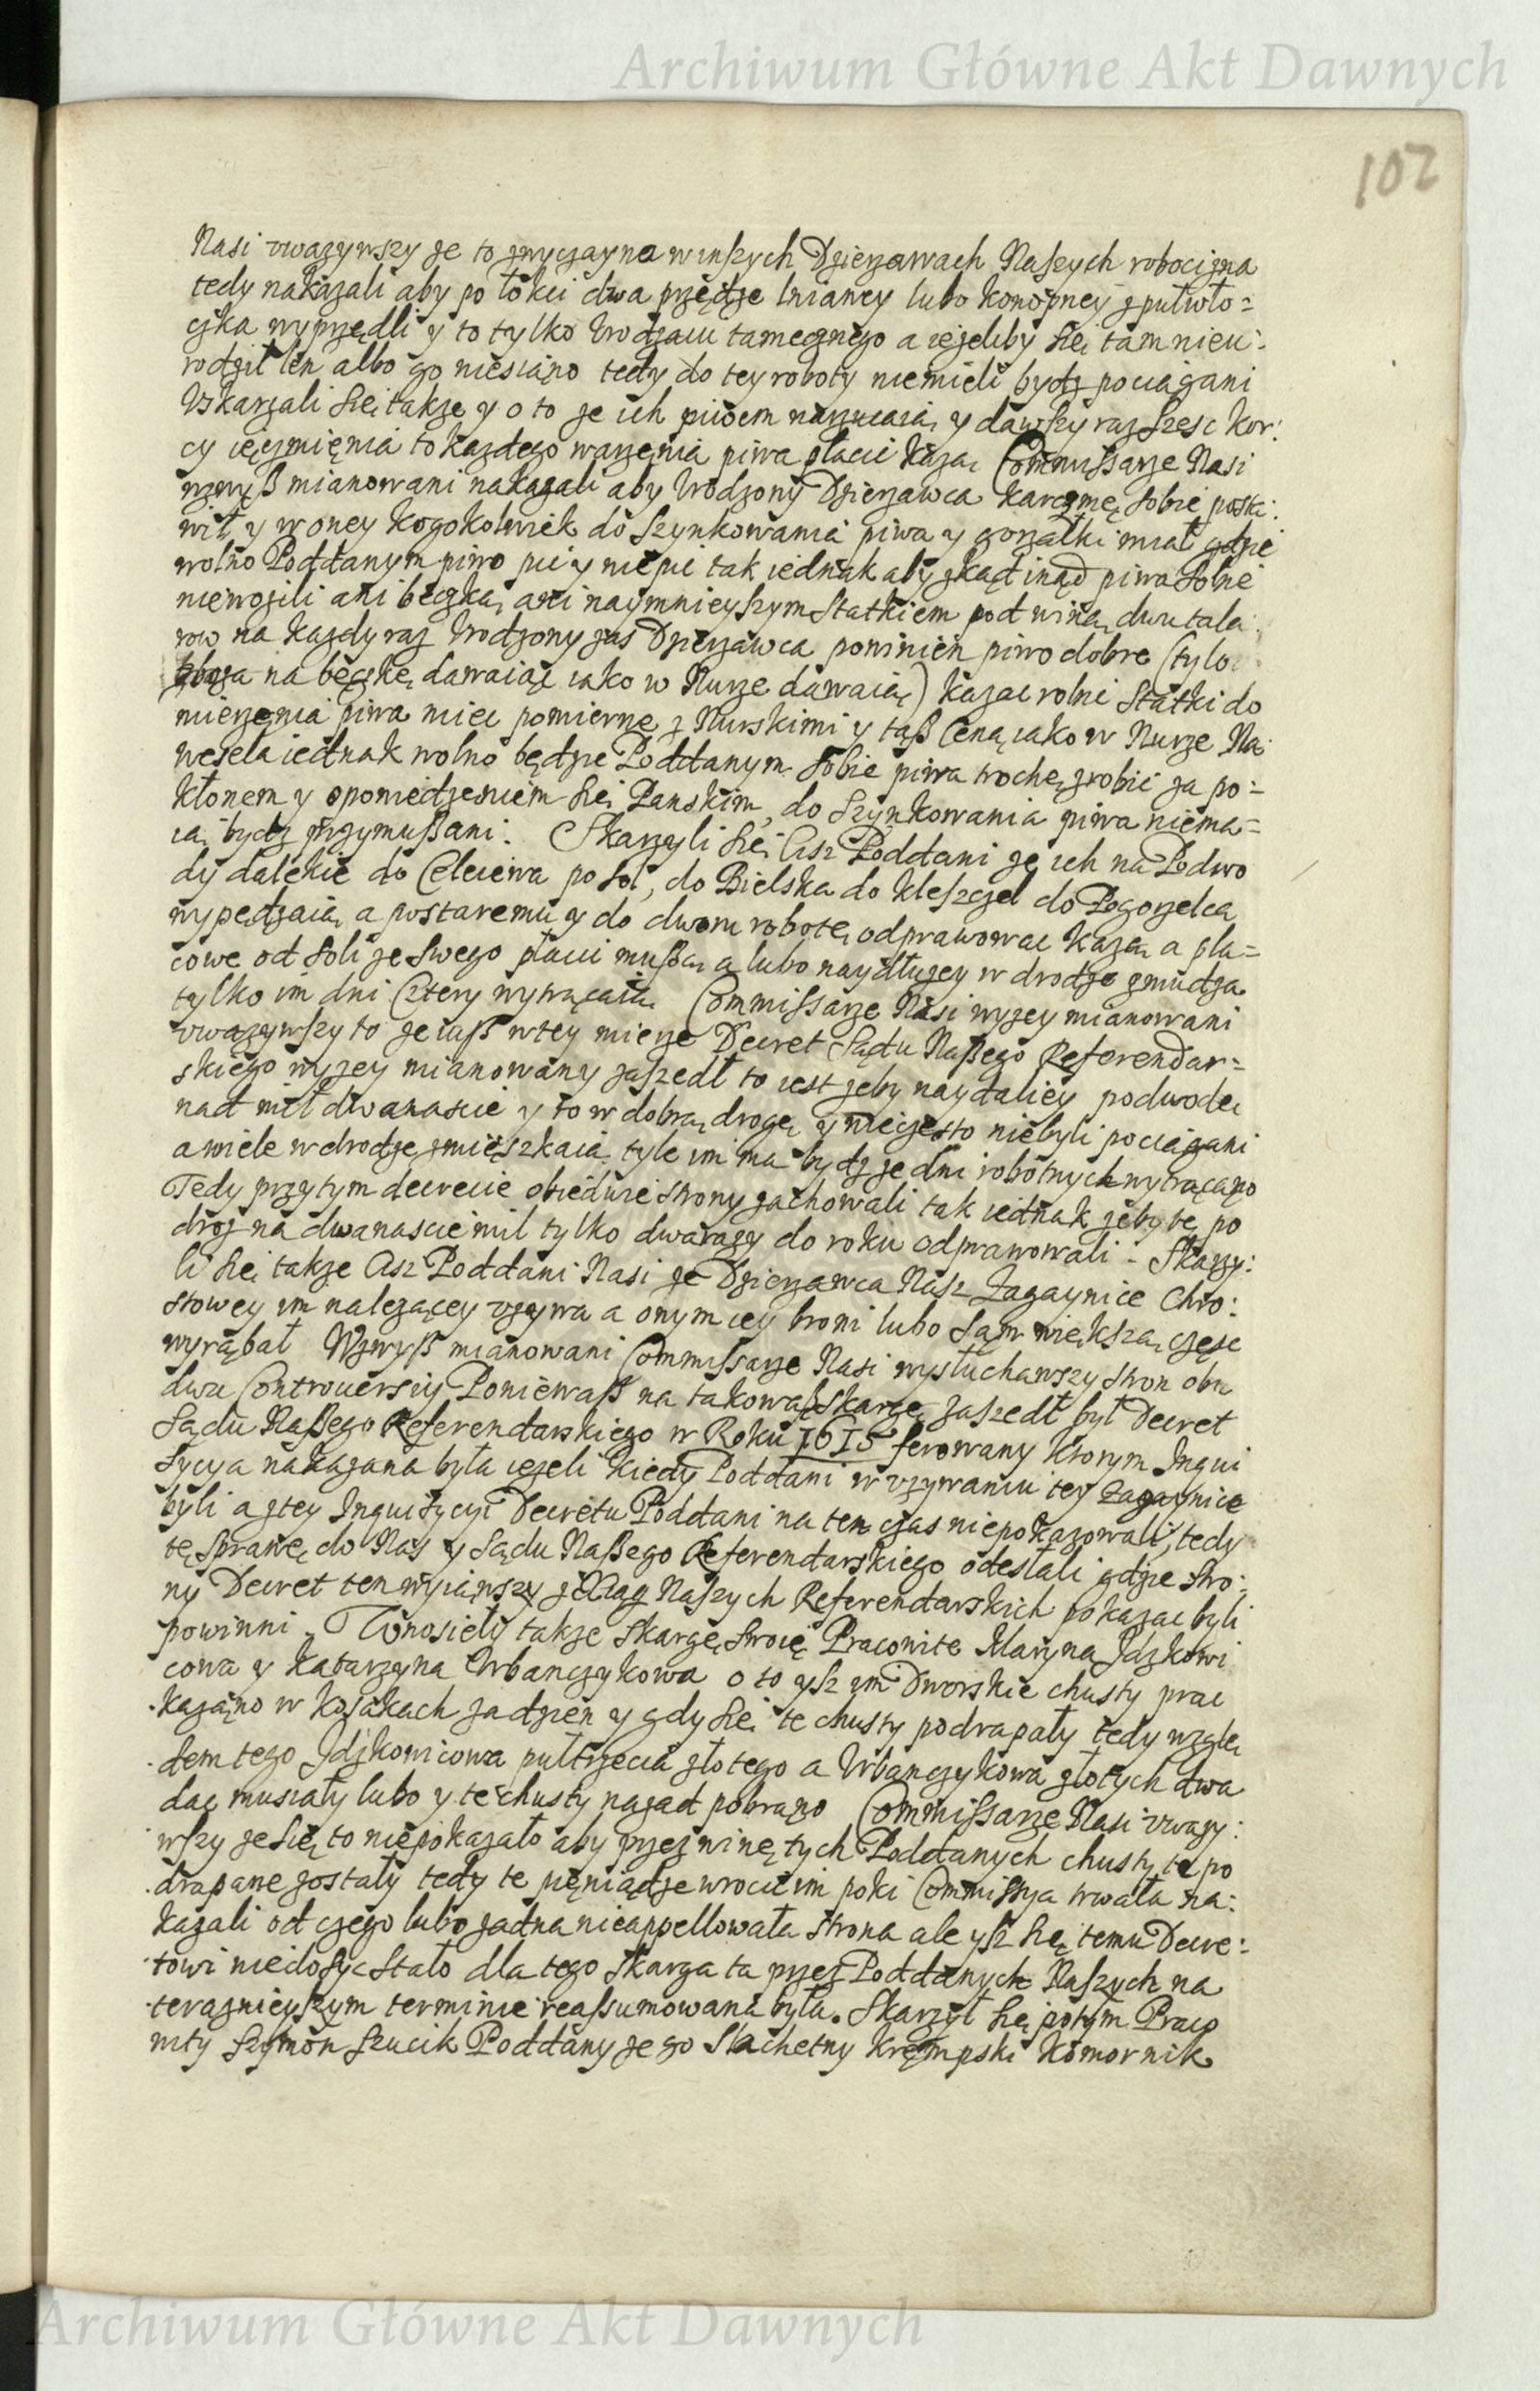 Archiwum Główne Akt Dawnych
102
Nasi uwazywszy ze to zwyczayna w inszych Dzierzawach Naszych robocizna
tedy nakazali aby po łokci dwa przędze lnianey lubo konopney z pułwło=
czka wyprzędli y to tylko Urodzaiu tamecznego a ieżeliby się tam nieu:
rodził len albo go niesiano tedy do tey roboty niemieli bydz pociągani
Uskarzali się takze y o to ze ich piwem narzucaią y dawszy raz szesc kor:
cy ięczmięnia to kazdego warzęnia piwa płacić kazą Commissarze Nasi
wzwyß mianowani nakazali aby Urodzony Dzierzawca karczmę sobie posta:
wił y w oney kogokolwiek do szynkowania piwa y gorzałki miał gdzie
wolno Poddanym piwo pic y niepic tak iednak aby zkąd inąd piwa sobie
niewozili ani beczką, ani naymnieyszym Statkiem pod winą dwu tala:
row na kazdy raz Urodzony zas Dzierzawca powinien piwo dobre (tylo
zboza na beczkę dawaiąc iako w Nurze dawaią) kazac robic Statki do
mierzęnia piwa miec pomierne z Nurskimi y taß Ceną iako w Nurze Na
wesela iednak wolno będzie Poddanym sobie piwa trochę zrobic za po:=
kłonem y opowiedzeniem się Panskim, do Szynkowania piwa niema=
ią bydz przymußani. Skarzyli się cisz Poddani ze ich na Podwo
dy dalekie do Celeiewa po sol, do Bielska do Kleszczel do Pogorzelca
wypędzaią a postaremu y do dworu robotę odprawowac kazą a pla=
cowe od soli ze swego płacic mußą a lubo naydłuzey w drodze zmudzą
tylko im dni Cztery wytrącaią. Commissarze Nasi wyzey mianowani
uwazywszy to ze iuß w tey mierze Decret Sądu Naßego Referendar=
skiego wyzey mianowany zaszedł to iest zeby naydaliey podwodę
nad mil dwanascie y to w dobrą drogę y nieczęsto niebyli pociągani
a wiele w drodze zmięszkaią tyle im ma bydz ze dni robotnych wytrącąno
Tedy przytym decrecie obiedwie strony zachowali tak iednak zeby tę po
droz na dwanascie mil tylko dwa razy do roku odprawowali - Skarzy:
li się takze Cisz Poddani Nasi ze Dzierzawca Nasz Zagaynice Chro:
stowey im nalezącey uzywa a onym iey broni lubo sam większą częsc
wyrąbał Wzwyß mianowani Commissarze Nasi wysłuchawszy stron obu
dwu Controuersiy Poniewaß na takowąß skargę zaszedł był Decret
Sądu Naßego Referendarskiego w Roku 1615 ferowany ktorym Inqui
sycya nakazana była iezeli kiedy Poddani w uzywaniu tey Zagaynice
byli a z tey Inquisycyi Decretu Poddani na ten czas niepokazowali, tedy
tę sprawę do Nas y Sądu Naßego Referendarskiego odesłali gdzie stro:
ny Decret ten wyiąwszy z Xiąg Naszych Referendarskich pokazac byli
powinni. Wnosiely takze skargę swoię Pracowite Maryna Idzkowi
cowa y Katarzyna Urbanczykowa o to ysz im Dworskie chusty prac
kaząno w Kosakach za dzien y gdy się te chusty podrapały tedy wzglę
dem tego Idzkowicowa pułtrzecia złotego a Urbanczykowa złotych dwa
dac musiały lubo y te chusty nazad pobrąno Commissarze Nasi uwazy:
wszy ze się to niepokazało aby przez winę tych Poddanych chusty te po
drapane zostały tedy te pięniądze wrocic im poki Commissya trwała na:
kazali od czego lubo zadna nieappellowała strona ale ysz się temu Decre:
towi niedosyc stało dla tego skarga ta przez Poddanych Naszych na
teraznieyszym terminie reassumowana była. Skarzył się potym Praco
wity Szymon Szucik Poddany ze go Slachetny Kręmpski Komornik
Archiwum Główne Akt Dawnych